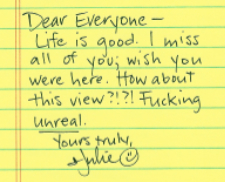 Dear Everyone—
Life is good. I miss
all of you; wish you
were here. How about
this view?!?! Fucking
unreal.
Yours truly,
Julie